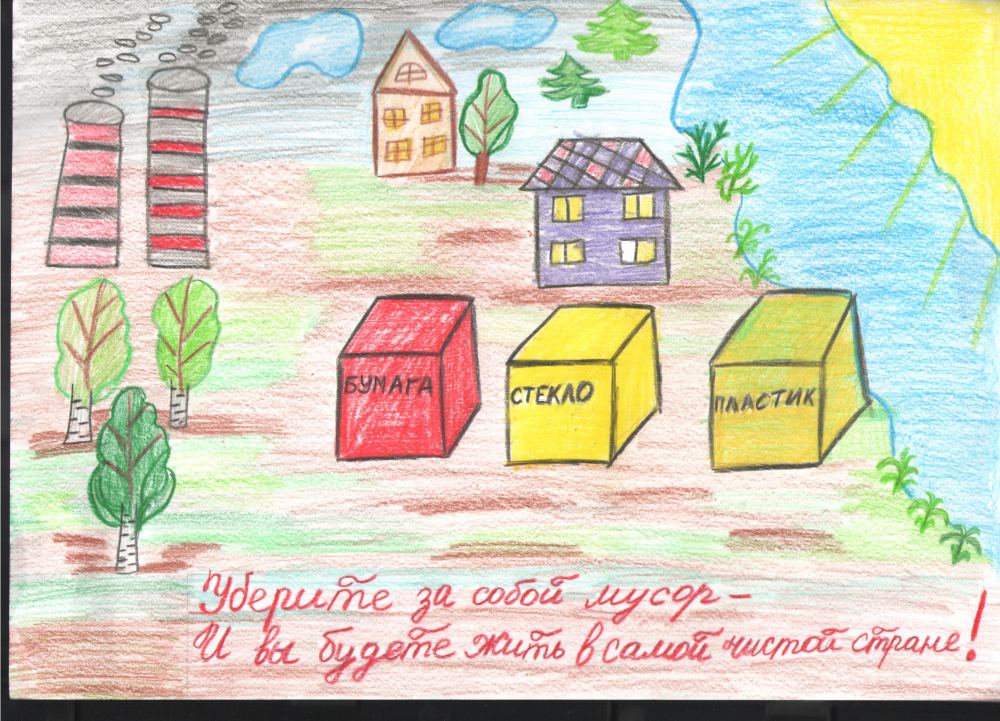 БУМАГА
СТЕКЛО
ПЛАСТИК
Уберите за собой мусор –
И вы будете жить в самой чистой стране!